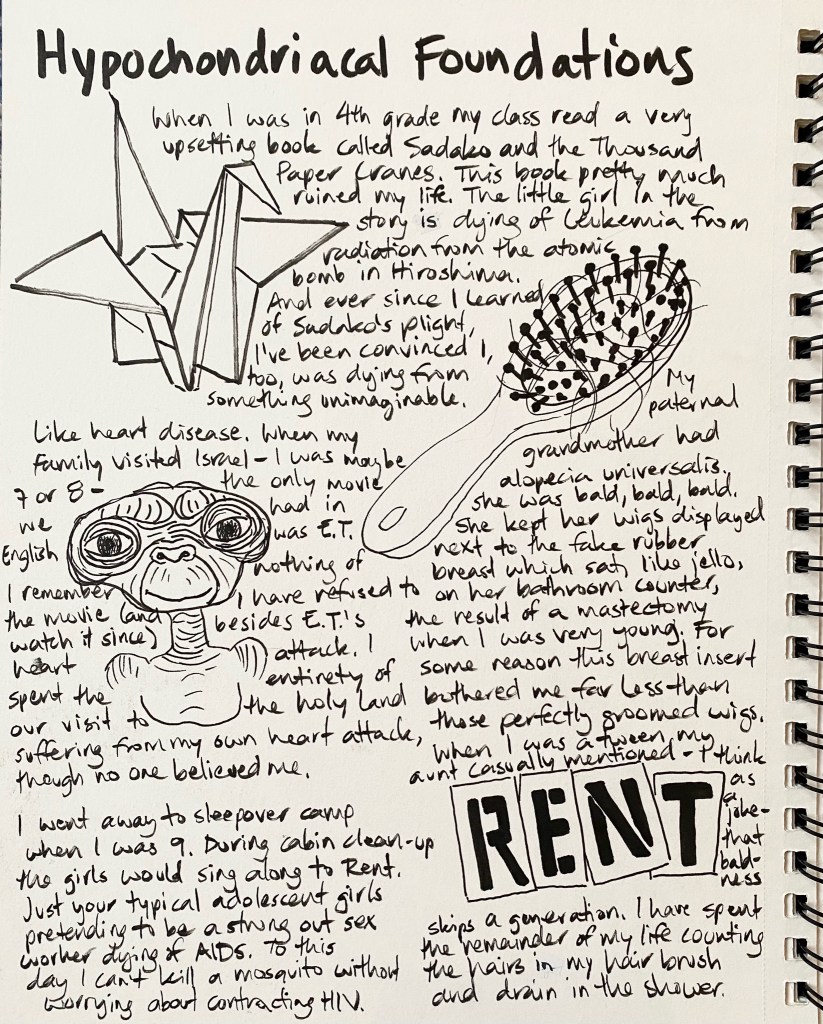 Hypochondriacal Foundations
When I was in 4th grade my class read a very
upsetting book called Sadako and the Thousand
Paper Cranes. This book pretty much
ruined my life. The little girl in the
story is dying of Leukemia from
radiation from the atomic
bomb in Hiroshima.
And ever since I learned
of Sadako's plight,
I've been convinced I,
too, was dying from
something unimaginable.
Like heart disease. When my
family visited Israel - I was maybe
7 or 8 - the only movie
we had in
English was E.T.
I remember nothing of
the movie (and I have refused to
watch it since) besides E.T.'s
heart attack. I
spent the entirety of
our visit to the holy land
suffering from my own heart attack,
though no one believed me.
I went away to sleepover camp
when I was 9. During cabin clean-up
the girls would sing along to Rent.
Just your typical adolescent girls
pretending to be a strung out sex
worker dying of AIDs. To this
day I can't kill a mosquito without
worrying about contracting HIV.
My
paternal
grandmother had
alopecia universalis.
She was bald, bald, bald.
She kept her wigs displayed
next to the fake rubber
breast which sat, like jello,
on her bathroom counter,
the result of a mastectomy
when I was very young. For
some reason this breast insert
bothered me far less than
those perfectly groomed wigs.
When I was a tween, my
aunt casually mentioned - I think
as
a
joke-
that
bald-
ness
RENT
skips a generation. I have spent
the remainder of my life counting
the hairs in my hair brush
and drain in the shower.